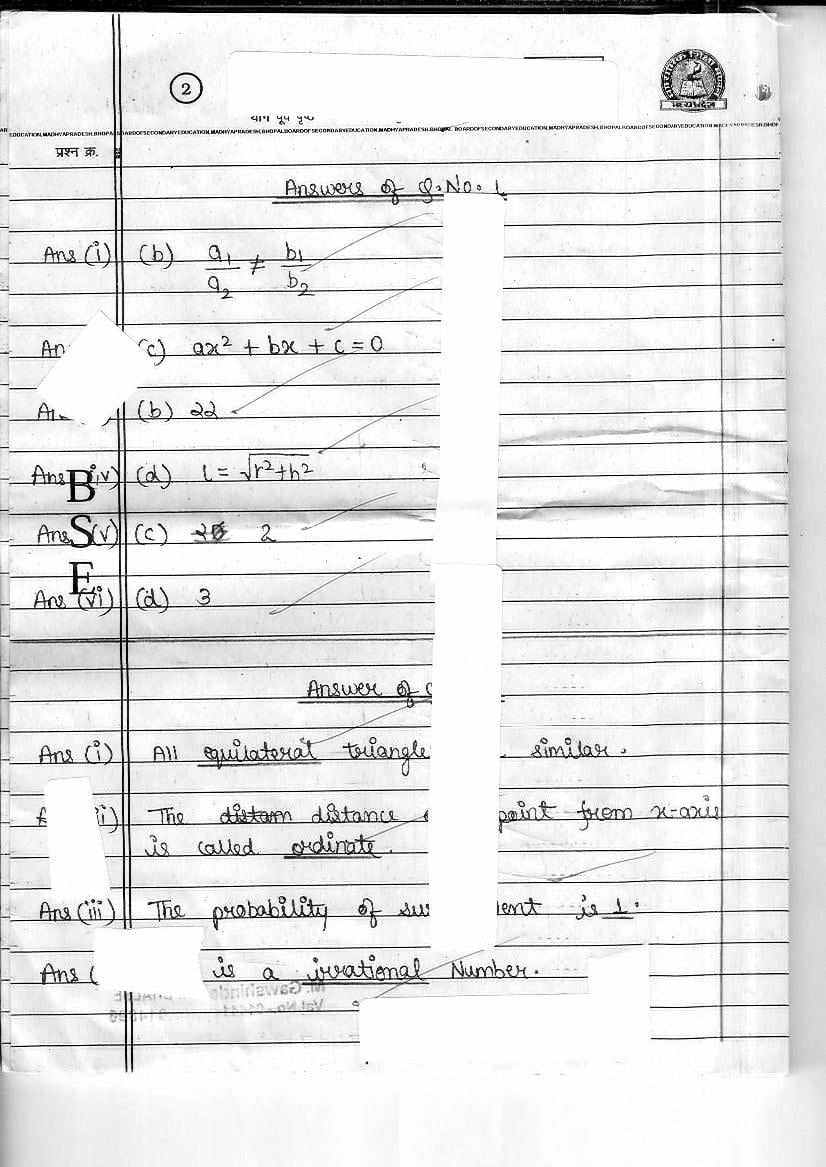 2
योग पूर्व पृष्ठ
EDUCATION,MADHYAPRADESH,BHOPAL BOARDOFSECONDARYEDUCATION,MADHYAPRADESH,BHOPALBOARDOFSECONDARYEDUCATION,MADHYAPRADESH,BHOPAL BOARDOFSECONDARYEDUCATION,MADHYAPRADESH,BHOPAL,BOARDOFSECONDARYEDUCATION
मध्यप्रदेश
प्रश्न क्र.
Answers of Q.No. 1
Ans (i) (b) a1/a2 ≠ b1/b2
(c) ax² + bx + c = 0
(b) 22
Ans iv) (d) l = √r²+h²
Ans (v) (c) 2
Ans (vi) (d) 3
B
S
E
Answer of
Ans (i) All equilateral triangle similar.
The distam distance point from x-axis
is called ordinate.
Ans (iii) The probability of is 1.
Ans ( is a irrational Number.